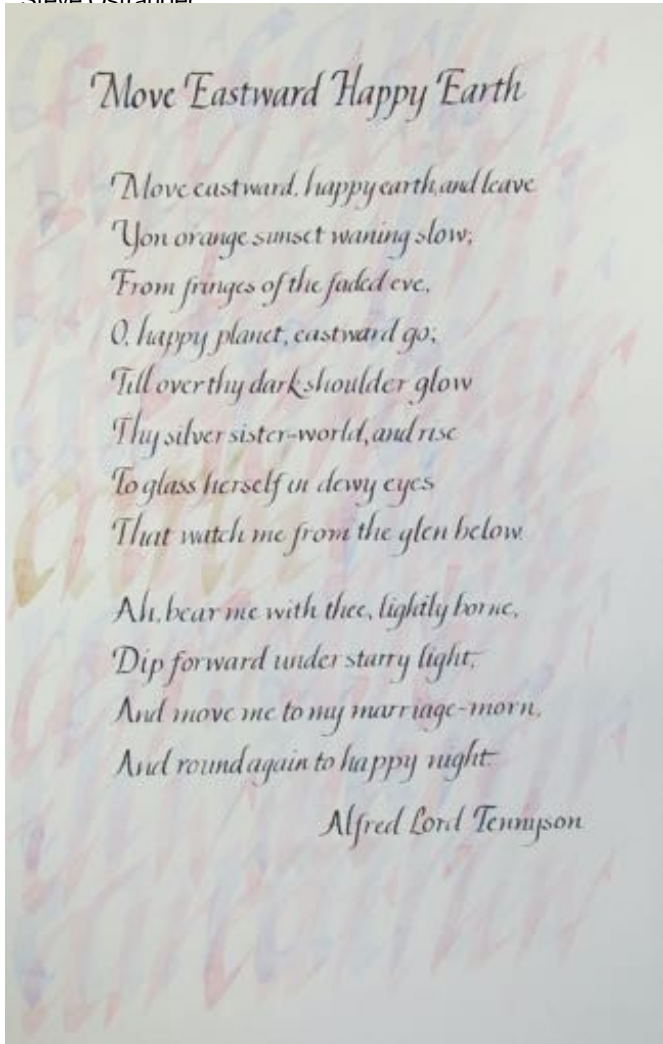 Steve Ostrander
Move Eastward Happy Earth
Move eastward, happy earth, and leave
Yon orange sunset waning slow;
From fringes of the faded eve,
O, happy planet, eastward go;
Till over thy dark shoulder glow
Thy silver sister-world, and rise
To glass herself in dewy eyes
That watch me from the glen below.
Ah, bear me with thee, lightly borne,
Dip forward under starry light,
And move me to my marriage-morn,
And round again to happy night.
Alfred Lord Tennyson